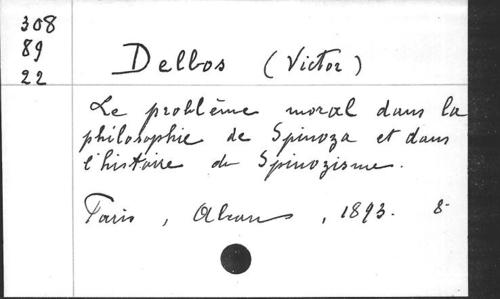 308
89
22
Delbos (Victor)
Le problème moral dans la
philosophie de Spinoza et dans
l'histoire du Spinozisme.
Paris, Alcan, 1893. 8-